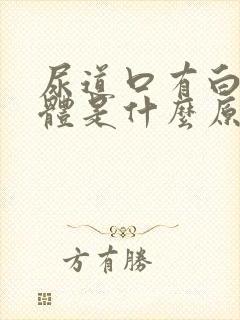 尿道口有白
體是什麼原
方有勝